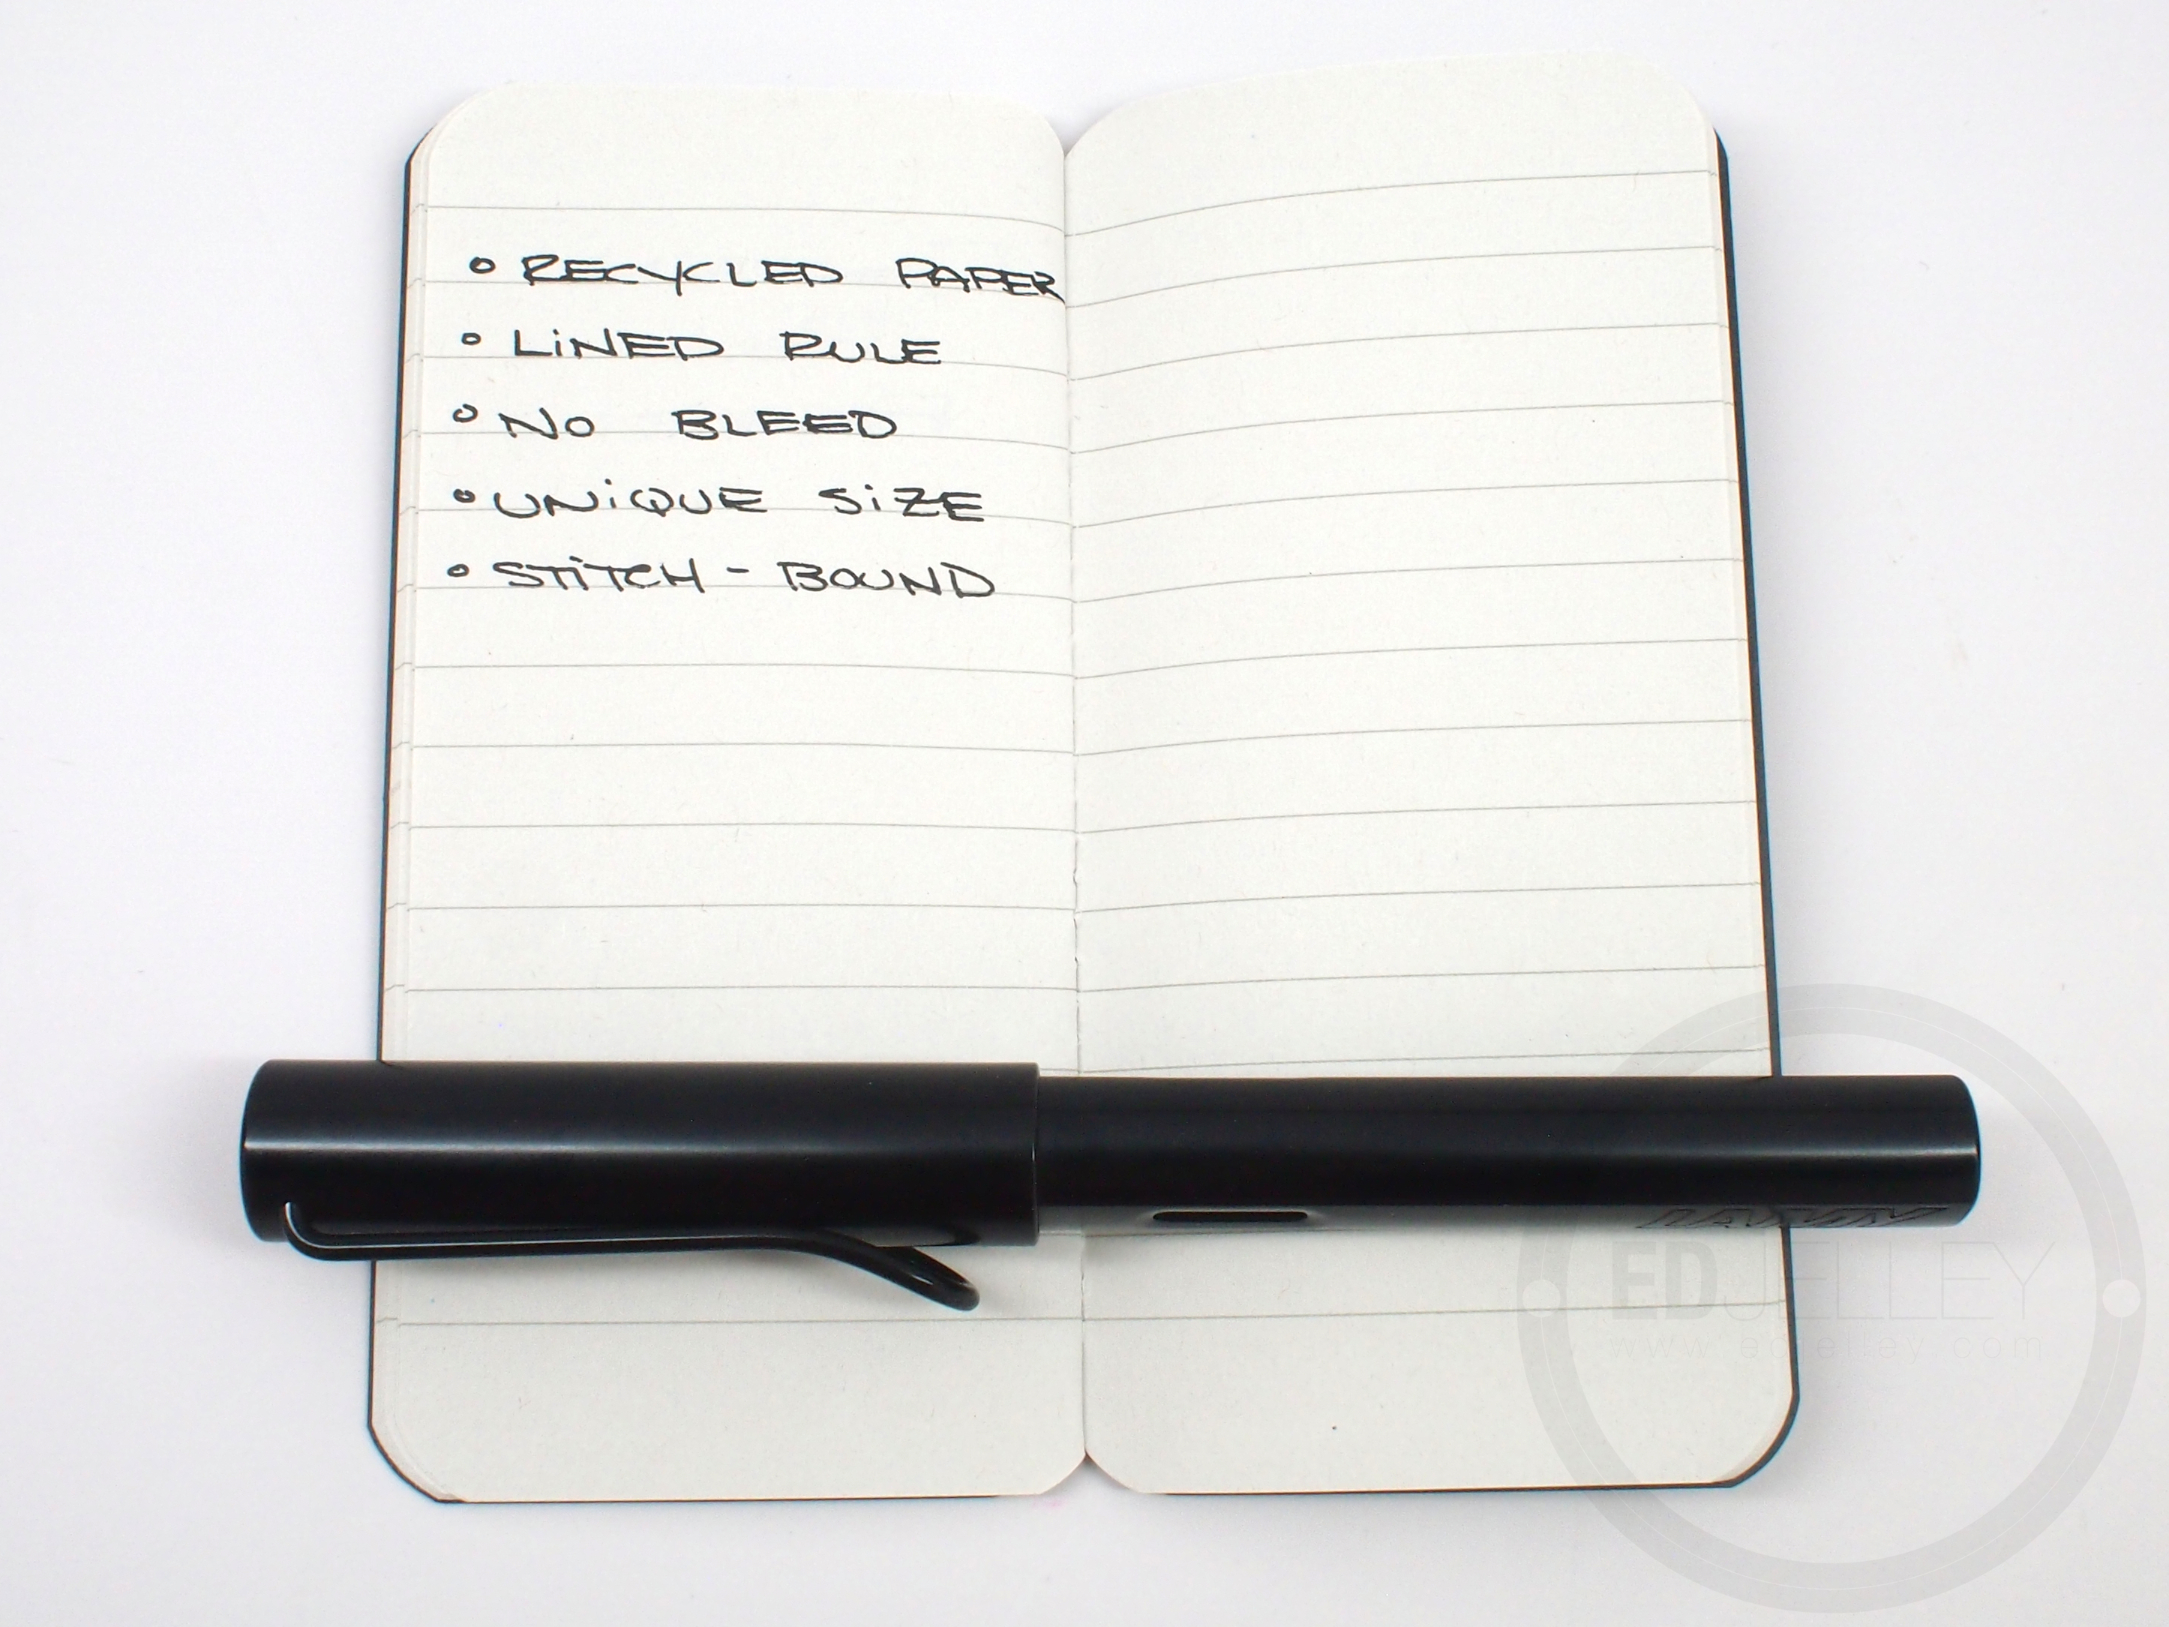 ° RECYCLED PAPER
° LiNED RULE
° NO BLEED
° UNiQUE SiZE
° STiTCH - BOUND
LAMY
EDJELLEY
www edjelley com